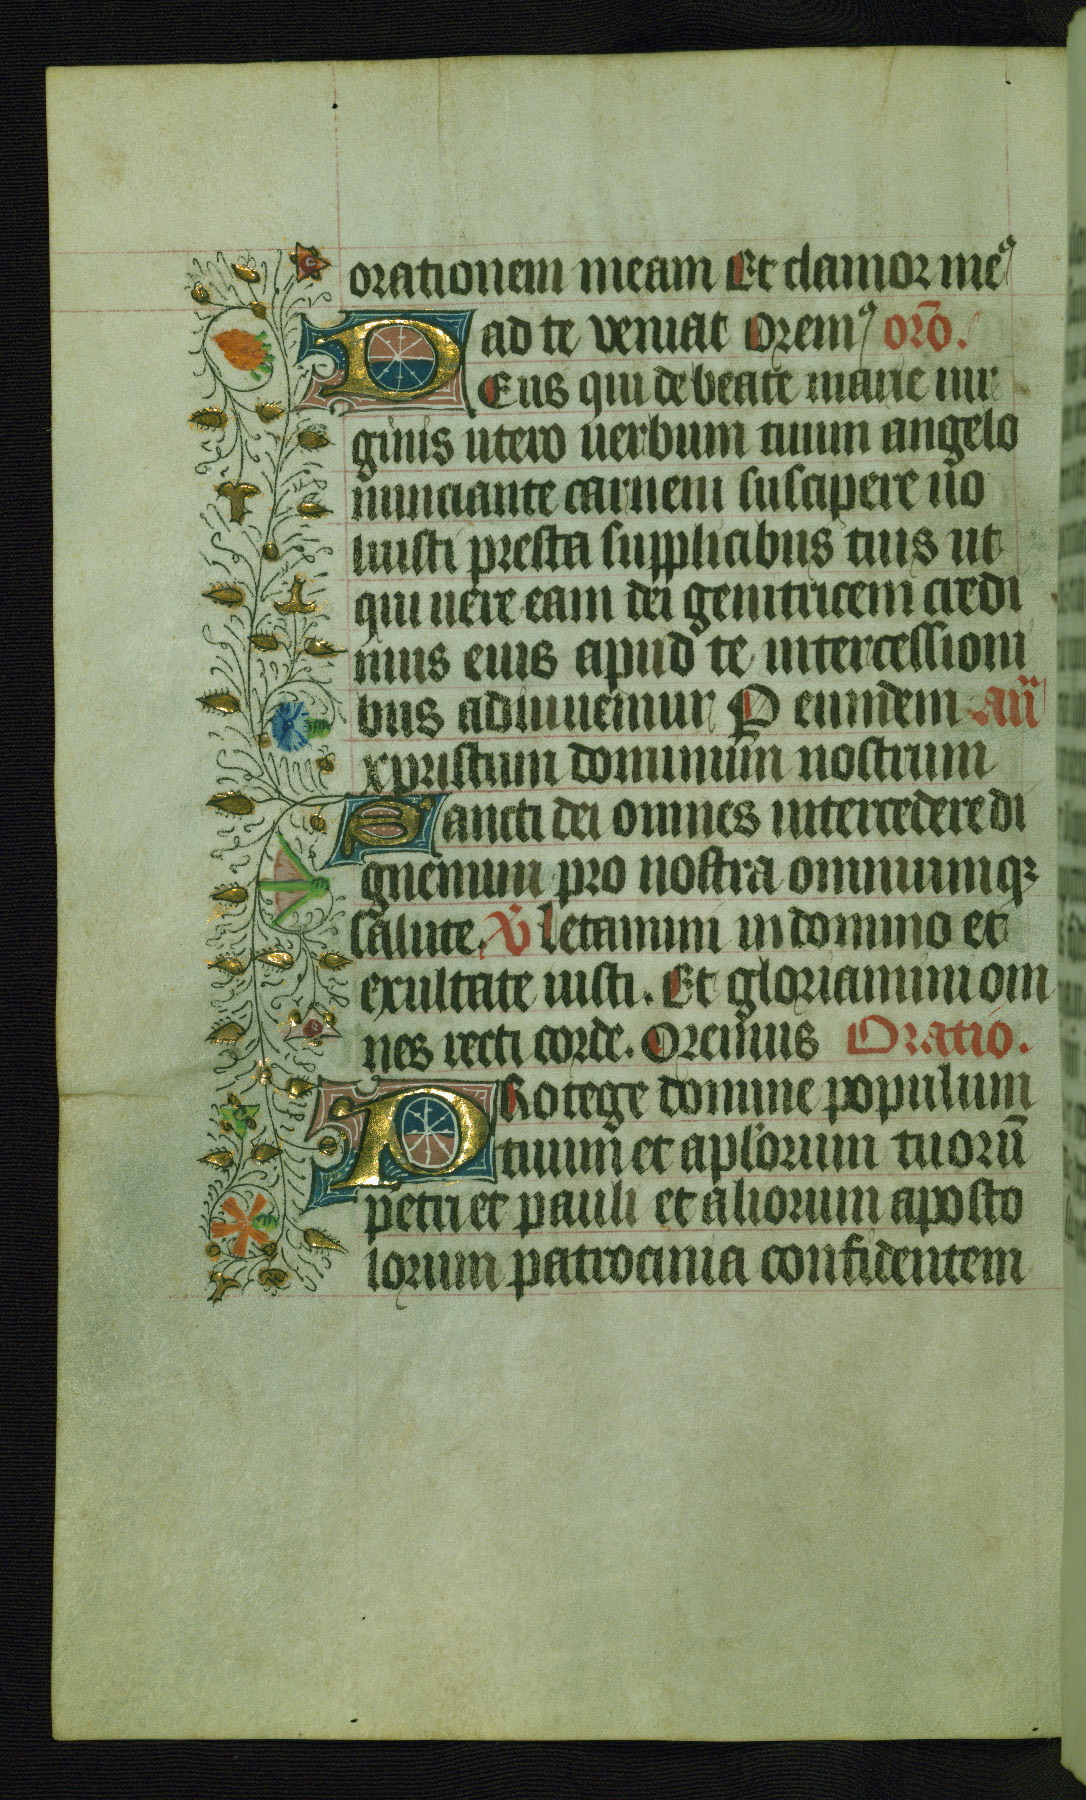 orationem meam Et clamor me⁹
ad te veniat Orem⁹ or̄o.
DEus qui de beate marie uir
ginis utero uerbum tuum angelo
nunciante carnem suscipere uo
luisti presta supplicibus tuis ut
qui uere eam dei genitricem credi
mus eius apud te intercessioni
bus adiuuemur P eundem añ
xpristum dominum nostrum
Sancti dei omnes intercedere di
gnemini pro nostra omniumqꝫ
salute. V̄ letamini in domino et
exultate iusti. Et gloriamini om
nes recti corde. Oremus Oratio.
PRotege domine populum
tuum et apl'orum tuorū
petri et pauli et aliorum aposto
lorum patrocinia confidentem